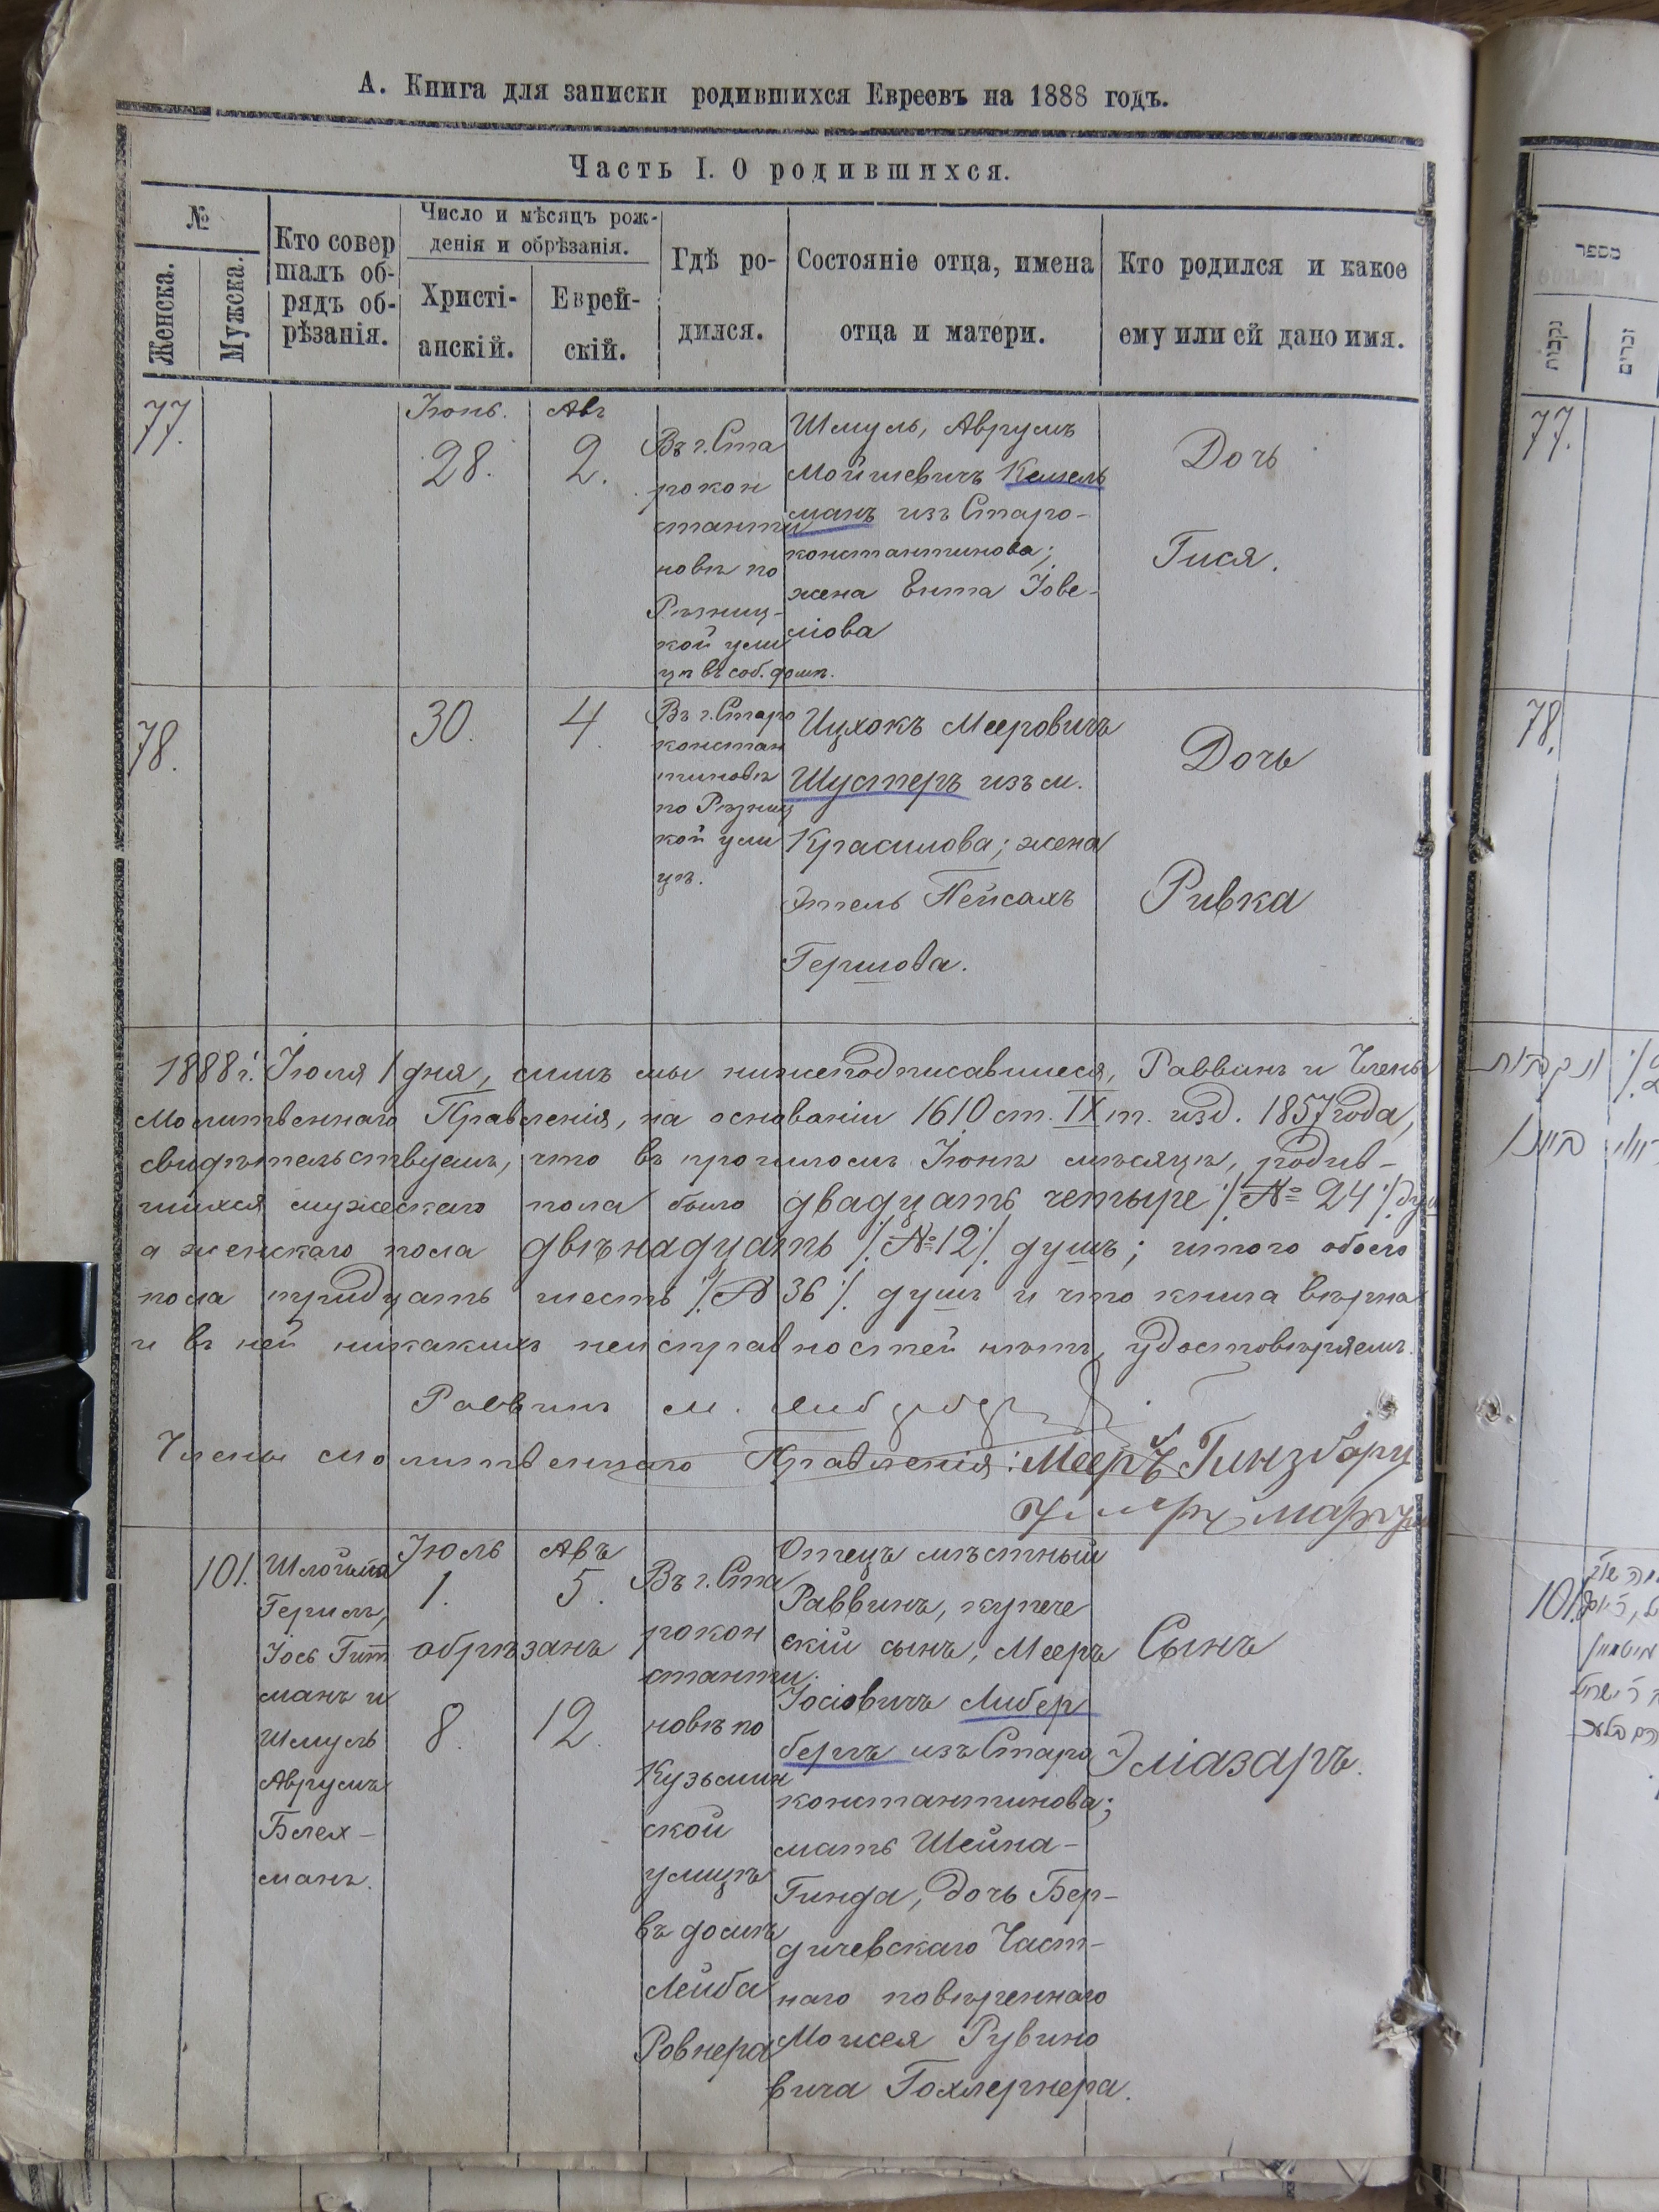 А. Книга для записки родившихся Евреевъ на 1888 годъ.
Часть I. О родившихся.
№
Женска.
Мужска.
Кто совер
шалъ об-
рядъ об-
рѣзанія.
Число и мѣсяцъ рож-
денія и обрѣзанія.
Христі-
анскій.
Еврей-
скій.
Гдѣ ро-
дился.
Состояніе отца, имена
отца и матери.
Кто родился и какое
ему или ей дано имя.
77.
Іюнь.
28.
Авг
2.
Въ г. Ста
рокон
станти
новѣ по
Рѣзниц-
кой ули
цѣ въ соб. домѣ.
Шмуль, Аврумъ
Мойшевичъ Кешель
манъ изъ Старо-
константинова;
жена Ента Іове-
ліова
Дочь
Гися.
78.
30.
4.
Въ г. Старо
констан
тиновѣ
по Рѣзниц
кой ули
цѣ.
Ицхокъ Мееровичъ
Шустеръ изъ м.
Красилова; жена
Этель Пейсахъ
Гершова.
Дочь
Ривка
1888 г. Іюля 1 дня, симъ мы нижеподписавшиеся, Раввинъ и Члены
Молитвеннаго Правленія, на основаніи 1610 ст. IX т. изд. 1857 года,
свидѣтельствуемъ, что въ прошломъ Іюнѣ мѣсяцѣ, родив-
шихся мужескаго пола было двадцать четыре ./. № 24 ./. душ
а женскаго пола двѣнадцать ./. № 12 ./. душъ; итого обоего
пола тридцать шесть ./. № 36 ./. душъ и что книга вѣрна
и въ ней никакихъ неисправностей нѣтъ, удостовѣряемъ.
Раввинъ М.
Члены молитвеннаго Правленія: Мееръ Гинзбург
101.
Шлойма
Гершъ,
Іось Гит
манъ и
Шмуль
Аврумъ
Блех-
манъ.
Іюль
1.
Авъ
5.
обрѣзанъ
8.
12.
Въ г. Ста
рокон
станти
новѣ по
Кузьмин
ской
улицѣ
въ домѣ
Лейба
Ровнера
Отецъ мѣстный
Раввинъ, купече
скій сынъ, Мееръ
Іосіовичъ Либер
бергъ изъ Старо
константинова;
мать Шейна-
Гинда, дочь Бер-
дичевскаго Част-
наго повѣреннаго
Моисея Рувино
вича Гохлернера.
Сынъ
Эліазаръ.
מספר
נקבות
זכרים
77.
78.
101.